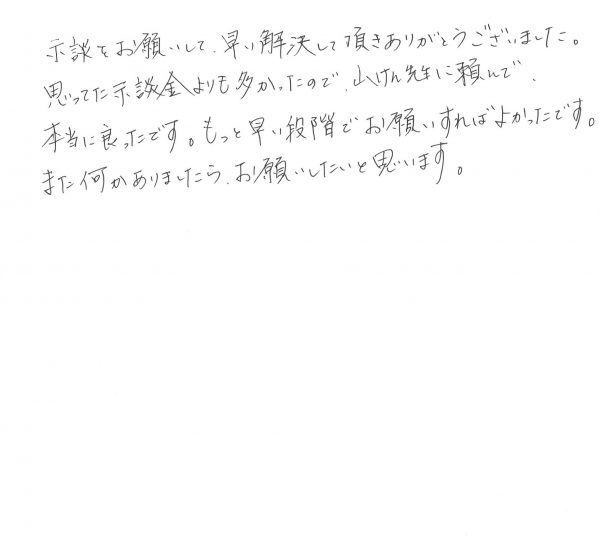 示談をお願いして、早い解決して頂きありがとうございました。
思ってた示談金よりも多かったので、山けん先生に頼んで、
本当に良ったです。もっと早い段階でお願いすればよかったです。
また何かありましたら、お願いしたいと思います。